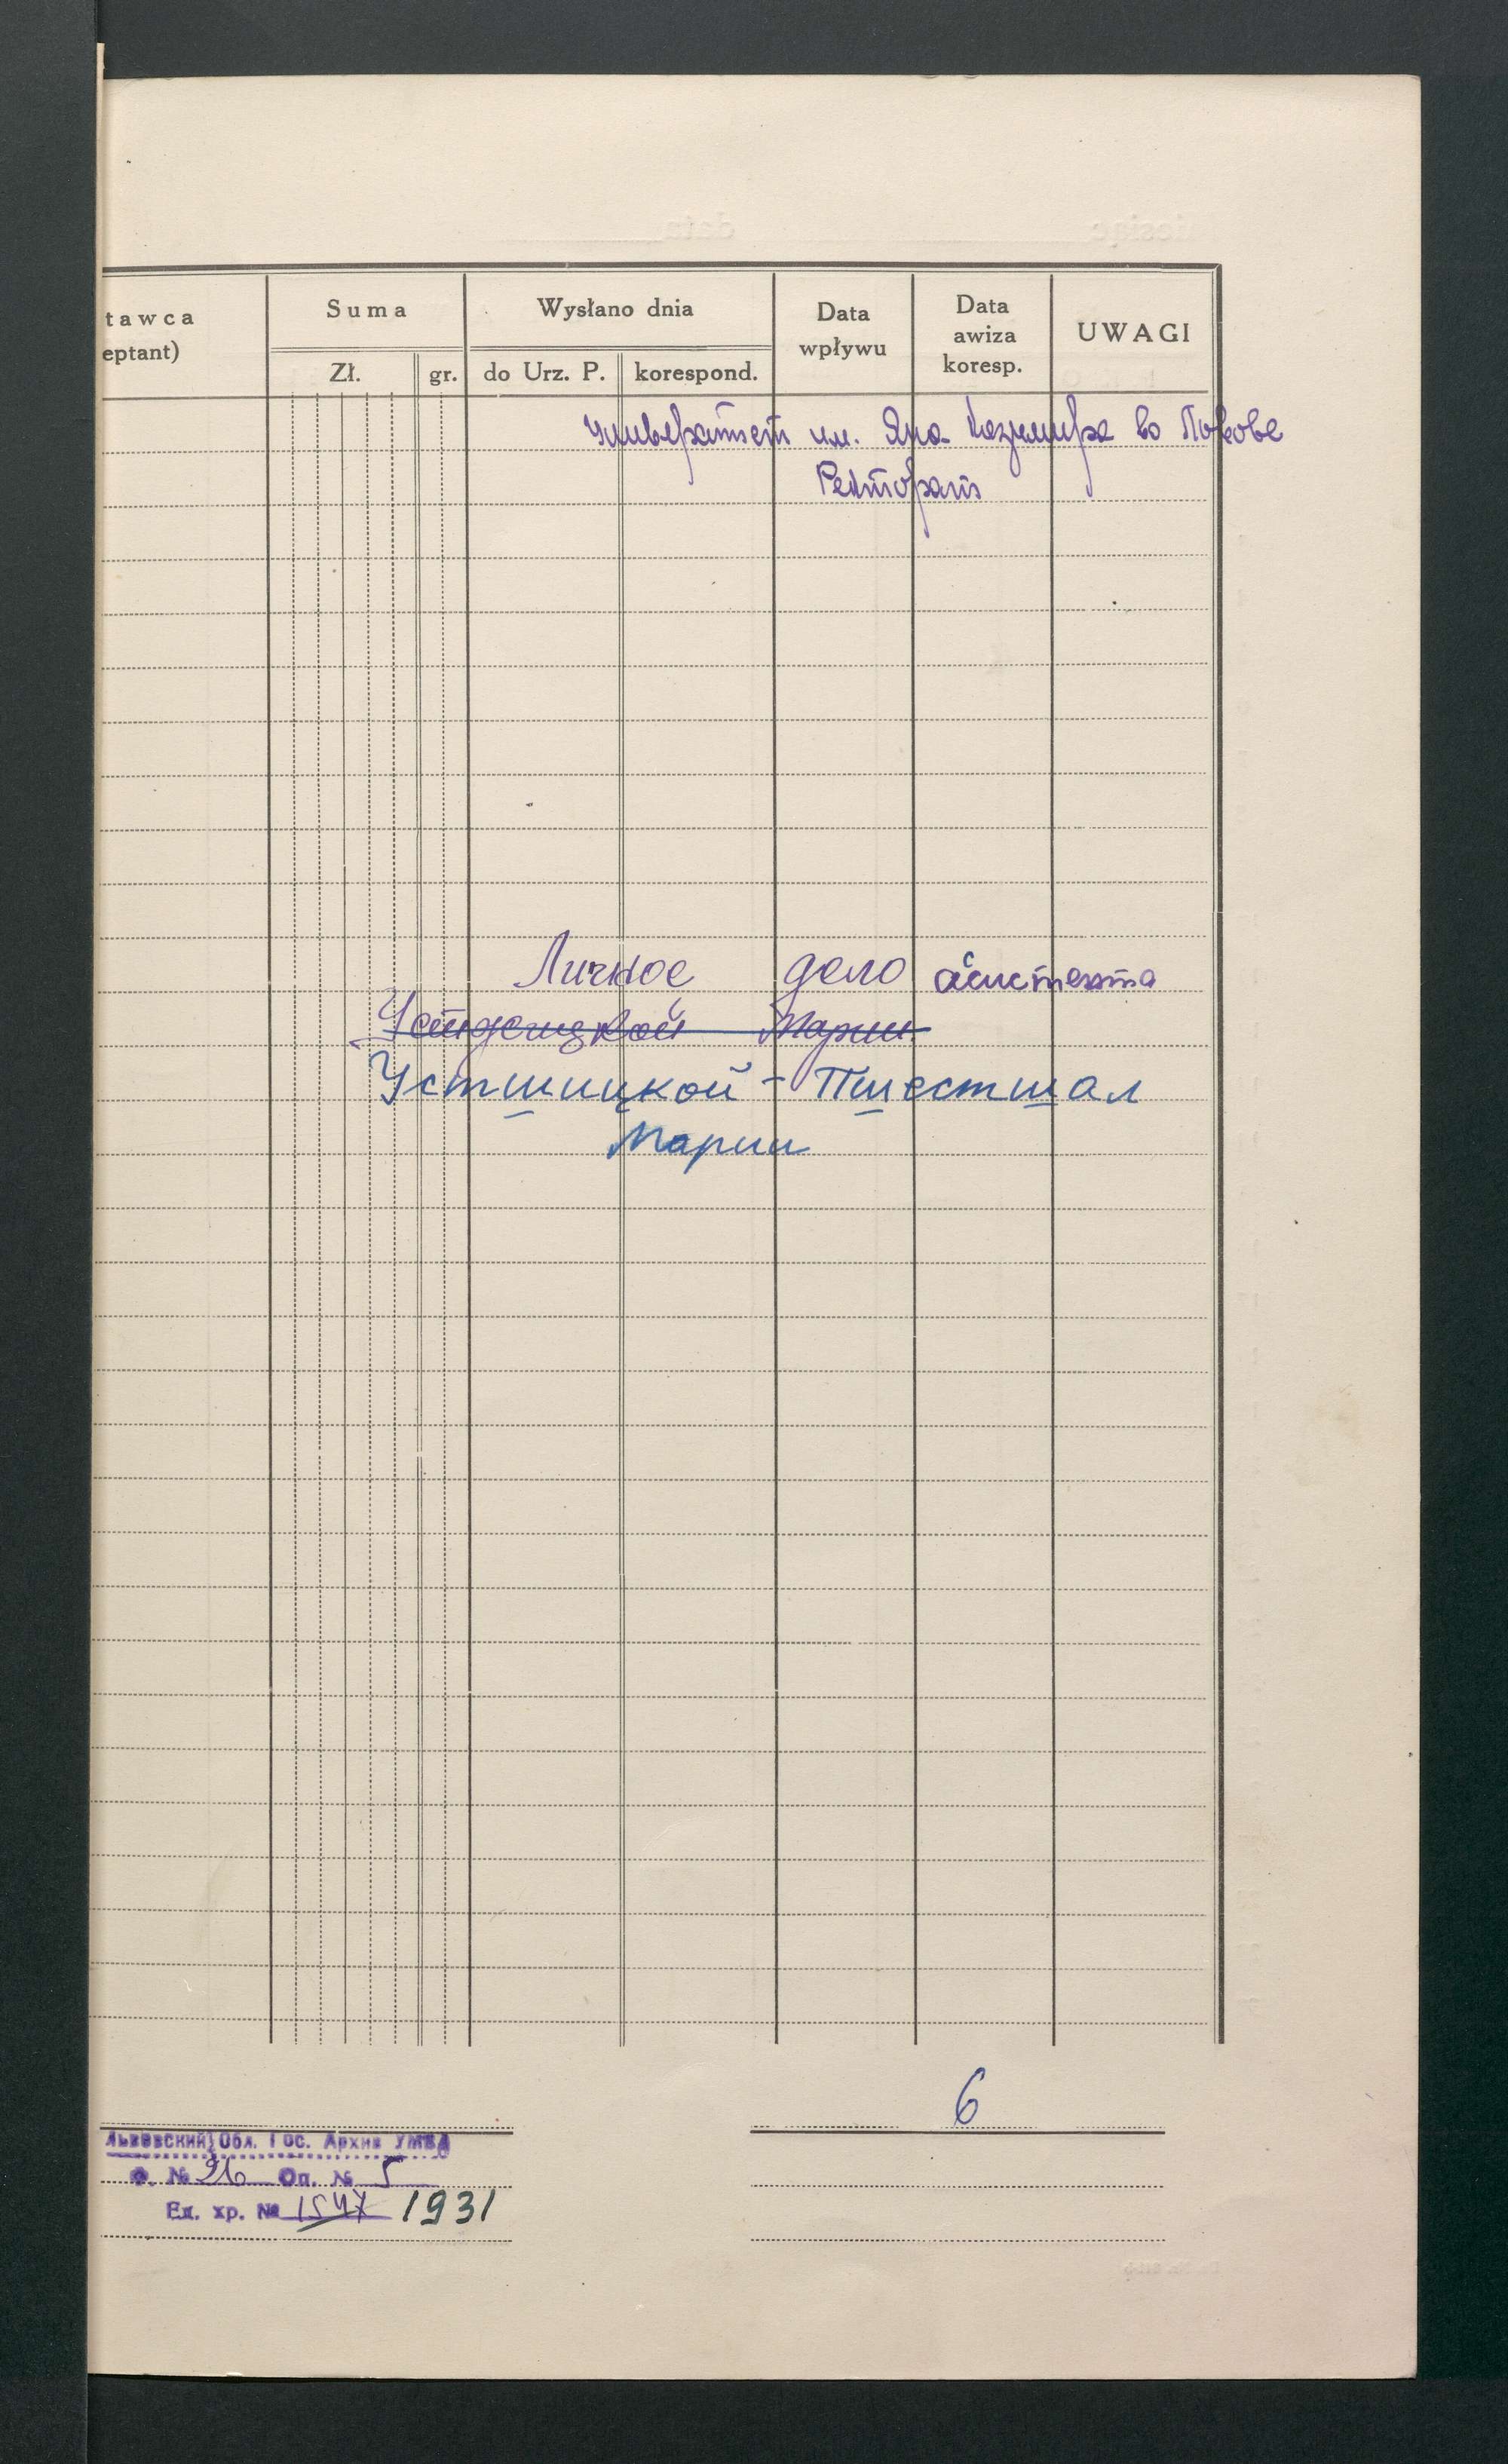 tawca
eptant)
Suma
Zł.
gr.
Wysłano dnia
do Urz. P.
korespond.
Data
wpływu
Data
awiza
koresp.
UWAGI
Университет им. Яна Казимира во Львове
Ректорат
Личное дело асистента
Марии
Устшицкой - Пшестшал
Марии
6
Львовский Обл. Гос. Архив УМВД
Ф. № 26 Оп. № 5
Ед. хр. № 1931